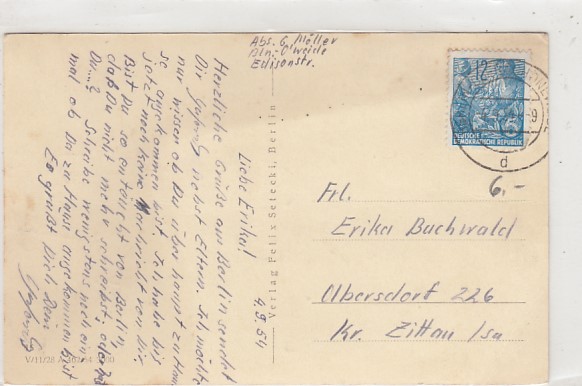 4.9.54
Liebe Erika!
Herzliche Grüße aus Berlin sendet
Dir nebst Eltern. Ich möchte
nur wissen ob Du überhaupt zu Hau
se angekommen bist. Ich habe bis
jetzt noch keine Nachricht von Dir.
Bist Du so enttäuscht von Berlin,
daß Du nicht mehr schreibst, oder
Du...? Schreibe wenigstens noch ein
mal ob Du zu Haus angekommen bist
Es grüßt Dich Dein
V/11/28 A
Verlag Felix Setecki, Berlin
Abs. G. Möller
Bln.-O'weide
Edisonstr.
12
DEUTSCHE
DEMOKRATISCHE REPUBLIK
d
6.-
Frl.
Erika Buchwald
Olbersdorf 226
Kr. Zittau /Sa